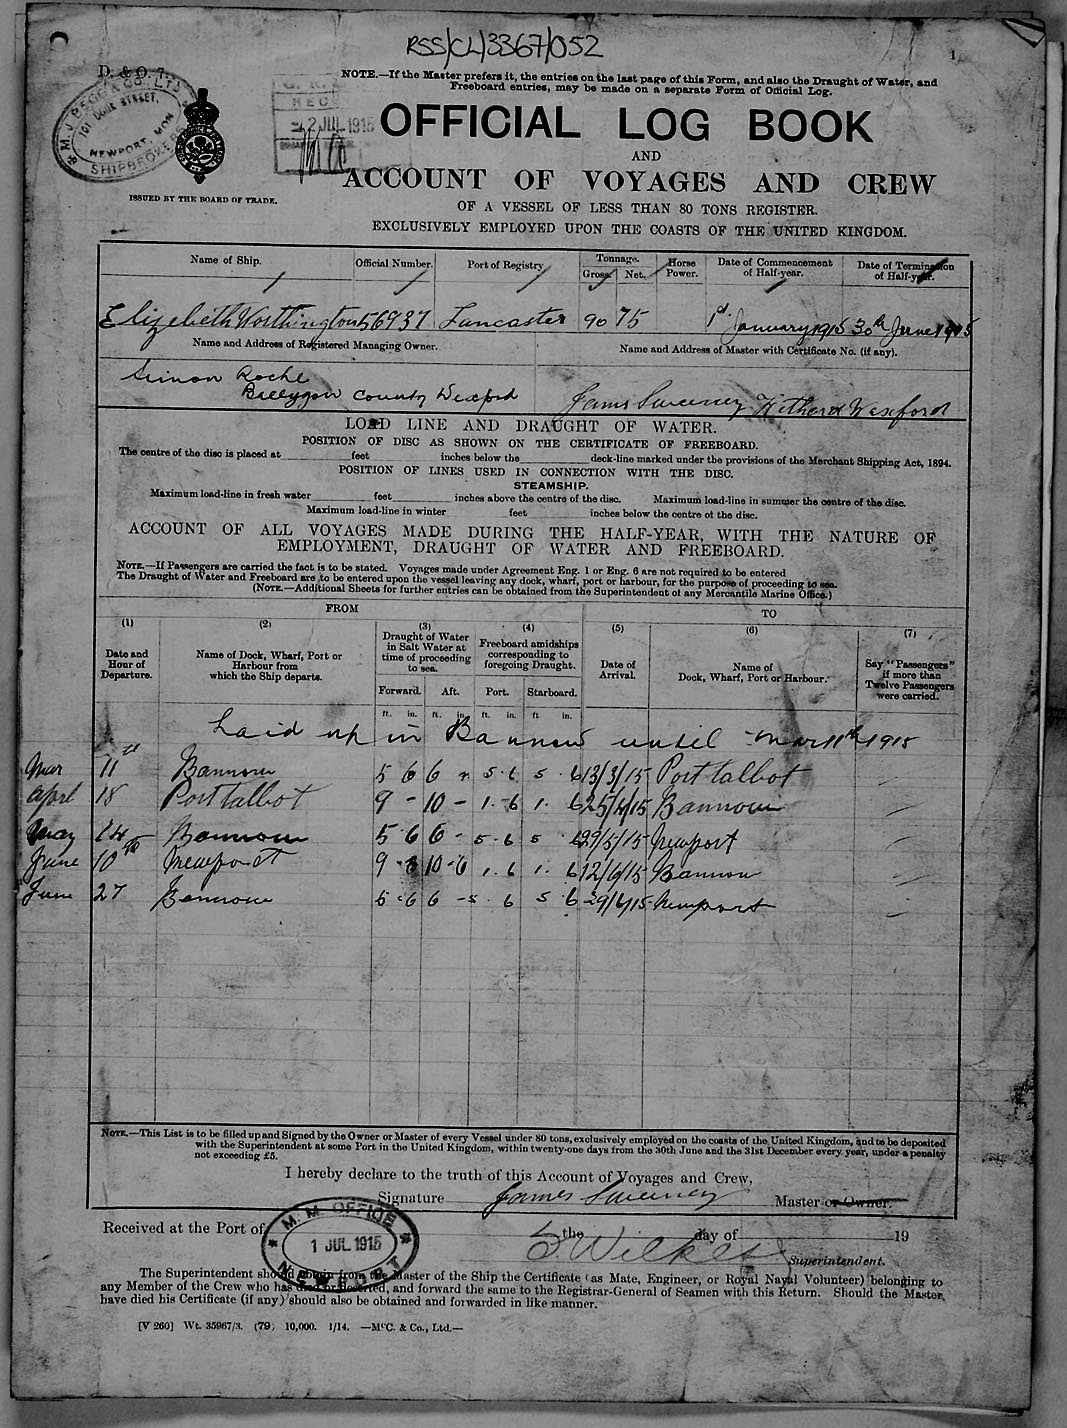 RSS/CL/3367/052
1
D. & O. 7.
M. J. BEGG & CO., LTD
101 DOCK STREET,
NEWPORT, MON
SHIPBROKERS
REC
2 JUL 1915
NOTE.—If the Master prefers it, the entries on the last page of this Form, and also the Draught of Water, and
Freeboard entries, may be made on a separate Form of Official Log.
OFFICIAL LOG BOOK
AND
ACCOUNT OF VOYAGES AND CREW
ISSUED BY THE BOARD OF TRADE.
OF A VESSEL OF LESS THAN 80 TONS REGISTER.
EXCLUSIVELY EMPLOYED UPON THE COASTS OF THE UNITED KINGDOM.
Name of Ship. Official Number. Port of Registry Tonnage. Gross. Net. Horse Power. Date of Commencement of Half-year. Date of Termination of Half-year.
Elizebeth Worthington 56937 Lancaster 90 75 1st January 1915 30th June 1915
Name and Address of Registered Managing Owner. Name and Address of Master with Certificate No. (if any).
Simon Roche
Ballygow County Wexford
James Sweeney Wexford
LOAD LINE AND DRAUGHT OF WATER.
POSITION OF DISC AS SHOWN ON THE CERTIFICATE OF FREEBOARD.
The centre of the disc is placed at feet inches below the deck-line marked under the provisions of the Merchant Shipping Act, 1894.
POSITION OF LINES USED IN CONNECTION WITH THE DISC.
STEAMSHIP.
Maximum load-line in fresh water feet inches above the centre of the disc. Maximum load-line in summer the centre of the disc.
Maximum load-line in winter feet inches below the centre of the disc.
ACCOUNT OF ALL VOYAGES MADE DURING THE HALF-YEAR, WITH THE NATURE OF
EMPLOYMENT, DRAUGHT OF WATER AND FREEBOARD.
NOTE.—If Passengers are carried the fact is to be stated. Voyages made under Agreement Eng. 1 or Eng. 6 are not required to be entered
The Draught of Water and Freeboard are to be entered upon the vessel leaving any dock, wharf, port or harbour, for the purpose of proceeding to sea.
(NOTE.—Additional Sheets for further entries can be obtained from the Superintendent of any Mercantile Marine Office.)
FROM TO
(1) (2) (3) (4) (5) (6) (7)
Date and Hour of Departure. Name of Dock, Wharf, Port or Harbour from which the Ship departs. Draught of Water in Salt Water at time of proceeding to sea. Freeboard amidships corresponding to foregoing Draught. Date of Arrival. Name of Dock, Wharf, Port or Harbour. Say "Passengers" if more than Twelve Passengers were carried.
Forward. Aft. Port. Starboard.
ft. in. ft. in. ft. in. ft in.
Laid up in Bannow until mar 11th 1915
Mar 11th Bannow 5 6 6 5 . 6 5 . 6 13/3/15 Port talbot
April 18 Port talbot 9 - 10 - 1 . 6 1 . 6 25/4/15 Bannow
May 24 Bannow 5 . 6 6 - 5 . 6 5 . 6 29/5/15 Newport
June 10th Newport 9 - 10 - 6 1 . 6 1 . 6 12/6/15 Bannow
June 27 Bannow 5 . 6 6 - 5 . 6 5 . 6 29/6/15 Newport
NOTE.—This List is to be filled up and Signed by the Owner or Master of every Vessel under 80 tons, exclusively employed on the coasts of the United Kingdom, and to be deposited
with the Superintendent at some Port in the United Kingdom, within twenty-one days from the 30th June and the 31st December every year, under a penalty
not exceeding £5.
I hereby declare to the truth of this Account of Voyages and Crew,
Signature James Sweeney Master or Owner.
Received at the Port of the day of 19
M. M. OFFICE
1 JUL 1915
NEWPORT
S. Wilkes
Superintendent.
The Superintendent should obtain from the Master of the Ship the Certificate (as Mate, Engineer, or Royal Naval Volunteer) belonging to
any Member of the Crew who has died or deserted, and forward the same to the Registrar-General of Seamen with this Return. Should the Master,
have died his Certificate (if any) should also be obtained and forwarded in like manner.
[V 260] Wt. 35967/3. (79) 10,000. 1/14. —McC. & Co., Ltd.—